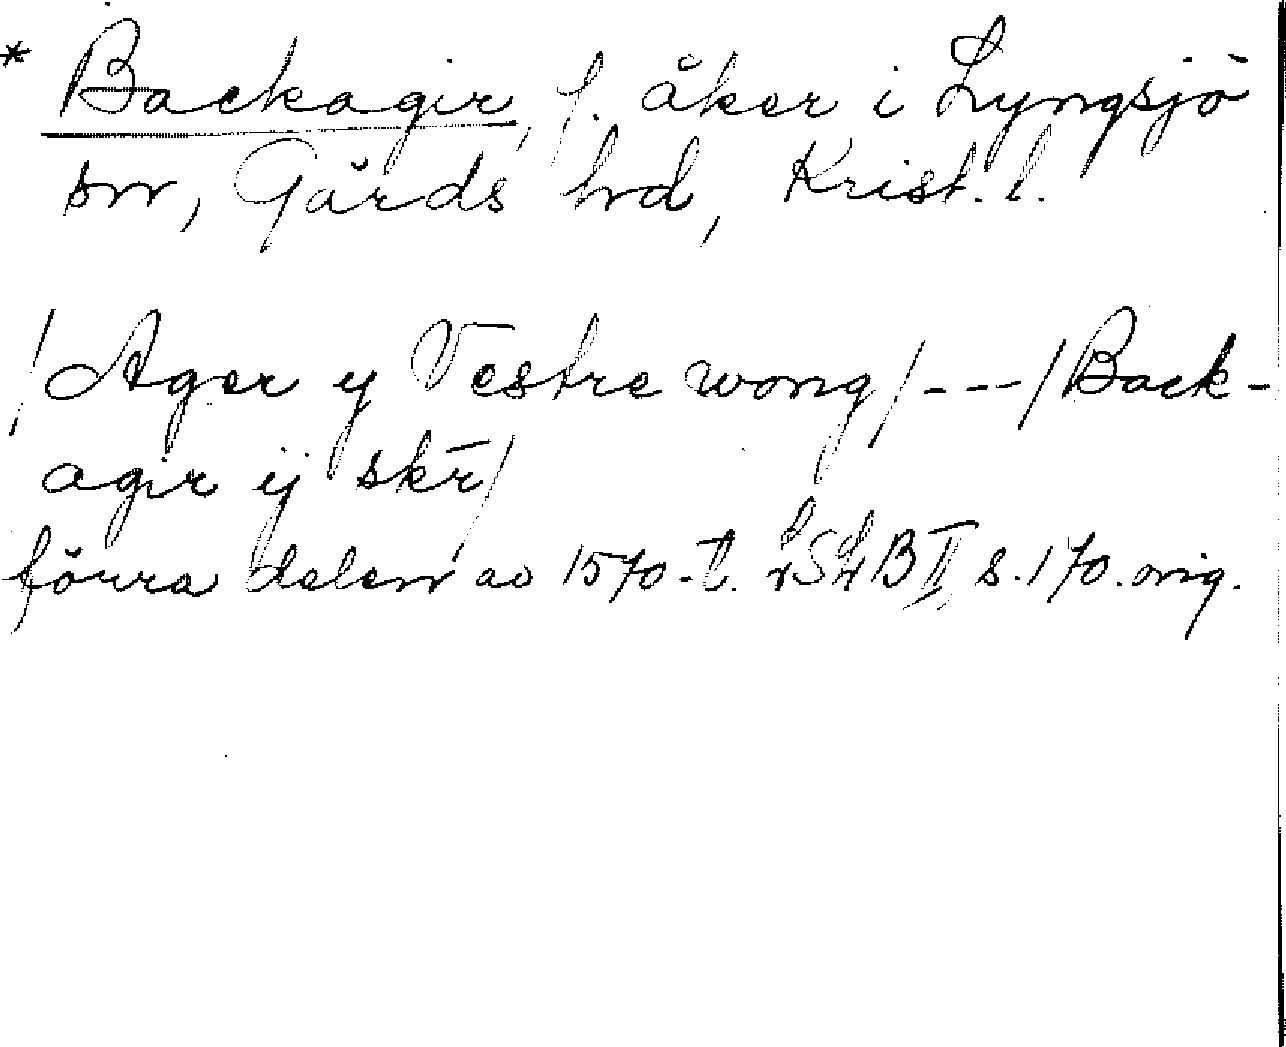 * Backagir, f. åker i Lyngsjö
sn, Gärds hd, Krist. l.
/Ager y Vestre wong/---/Back-
agir ij skr̄/
förra delen av 1570-t. LSLB II, s. 170. orig.